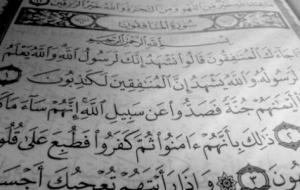 سُورَةُ الْمُنَافِقُونَ
بِسْمِ اللَّهِ الرَّحْمَٰنِ الرَّحِيمِ
جَآءَكَ ٱلْمُنَٰفِقُونَ قَالُوا۟ نَشْهَدُ إِنَّكَ لَرَسُولُ ٱللَّهِ وَٱللَّهُ يَعْلَمُ
لَرَسُولُهُۥ وَٱللَّهُ يَشْهَدُ إِنَّ ٱلْمُنَٰفِقِينَ لَكَٰذِبُونَ ١
أَيْمَٰنَهُمْ جُنَّةً فَصَدُّوا۟ عَن سَبِيلِ ٱللَّهِ إِنَّهُمْ سَآءَ مَا
٢ ذَٰلِكَ بِأَنَّهُمْ ءَامَنُوا۟ ثُمَّ كَفَرُوا۟ فَطُبِعَ عَلَىٰ قُلُو
ونَ ٣ وَإِذَا رَأَيْتَهُمْ تُعْجِبُكَ أَجْسَا